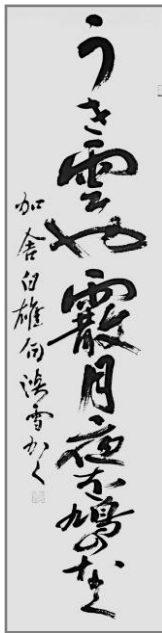 うき雲や霰月夜鳩のなく
加舎白雄句 雪かく